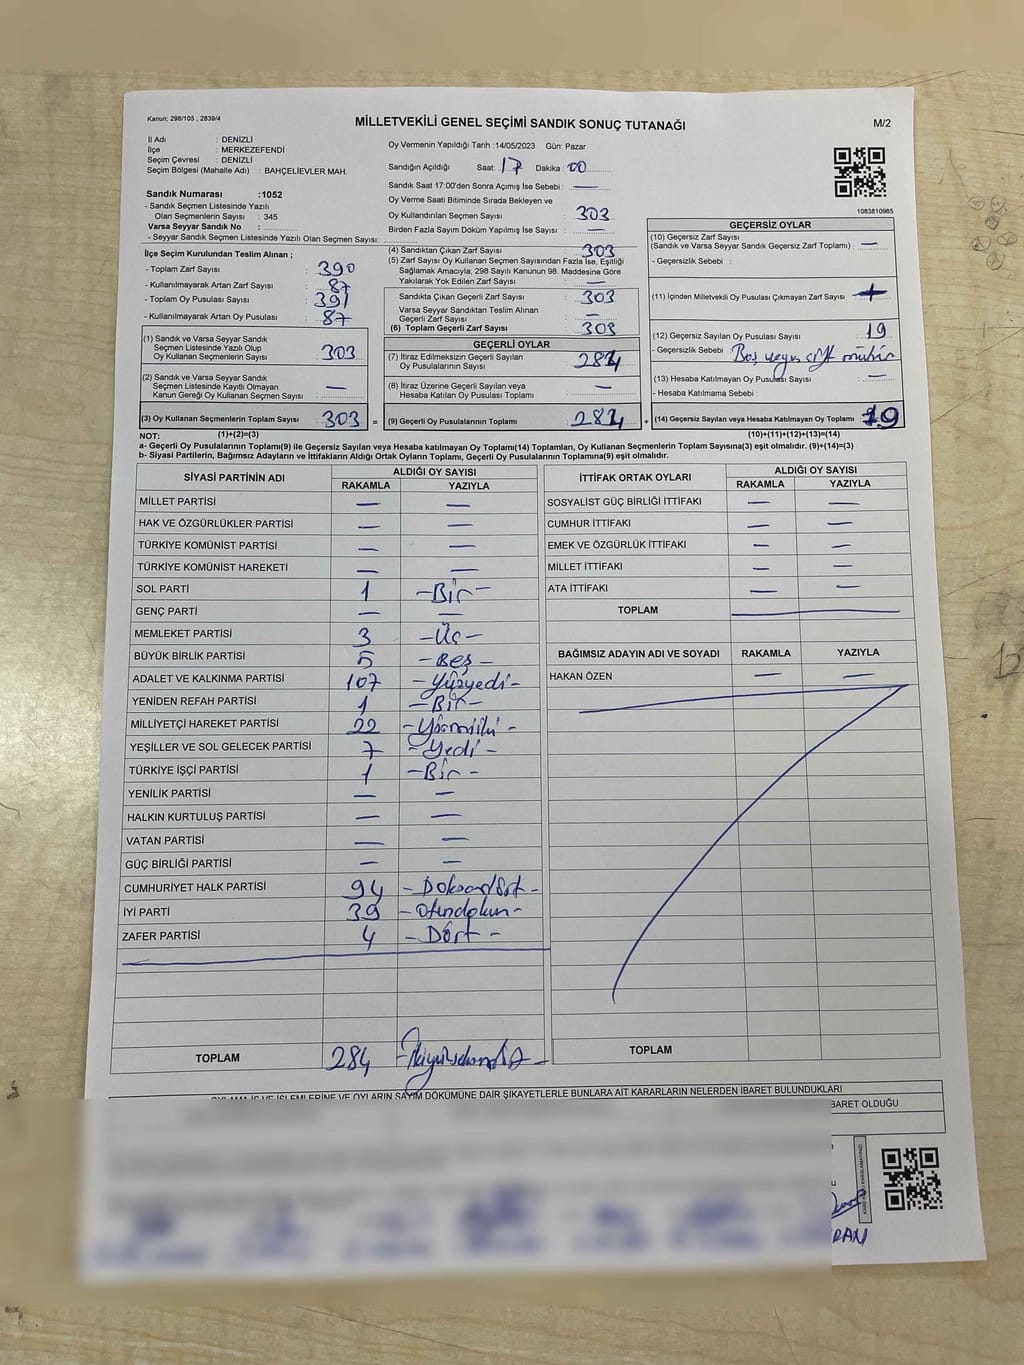 Kanun; 298/105 , 2839/4
MİLLETVEKİLİ GENEL SEÇİMİ SANDIK SONUÇ TUTANAĞI
M/2
İl Adı : DENİZLİ
İlçe : MERKEZEFENDİ
Seçim Çevresi : DENİZLİ
Seçim Bölgesi (Mahalle Adı) : BAHÇELİEVLER MAH.
Sandık Numarası :1052
- Sandık Seçmen Listesinde Yazılı
Olan Seçmenlerin Sayısı : 345
Varsa Seyyar Sandık No :
- Seyyar Sandık Seçmen Listesinde Yazılı Olan Seçmen Sayısı:
İlçe Seçim Kurulundan Teslim Alınan ;
- Toplam Zarf Sayısı : 390
- Kullanılmayarak Artan Zarf Sayısı : 87
- Toplam Oy Pusulası Sayısı : 391
- Kullanılmayarak Artan Oy Pusulası : 87
(1) Sandık ve Varsa Seyyar Sandık
Seçmen Listesinde Yazılı Olup
Oy Kullanan Seçmenlerin Sayısı : 303
(2) Sandık ve Varsa Seyyar Sandık
Seçmen Listesinde Kayıtlı Olmayan
Kanun Gereği Oy Kullanan Seçmenlerin Sayısı : —
(3) Oy Kullanan Seçmenlerin Toplam Sayısı : 303
(1)+(2)=(3)
Oy Vermenin Yapıldığı Tarih :14/05/2023 Gün: Pazar
Sandığın Açıldığı Saat: 17 Dakika : 00
Sandık Saat 17:00'den Sonra Açımış İse Sebebi : —
Oy Verme Saati Bitiminde Sırada Bekleyen ve
Oy Kullandırılan Seçmen Sayısı : 303
Birden Fazla Sayım Döküm Yapılmış İse Sayısı : —
(4) Sandıktan Çıkan Zarf Sayısı : 303
(5) Zarf Sayısı Oy Kullanan Seçmen Sayısından Fazla İse, Eşitliği
Sağlamak Amacıyla; 298 Sayılı Kanunun 98. Maddesine Göre
Yakılarak Yok Edilen Zarf Sayısı : —
Sandıkta Çıkan Geçerli Zarf Sayısı : 303
Varsa Seyyar Sandıktan Teslim Alınan
Geçerli Zarf Sayısı : —
(6) Toplam Geçerli Zarf Sayısı : 303
GEÇERLİ OYLAR
(7) İtiraz Edilmeksizin Geçerli Sayılan
Oy Pusulalarının Sayısı : 284
(8) İtiraz Üzerine Geçerli Sayılan veya
Hesaba Katılan Oy Pusulası Toplamı : —
= (9) Geçerli Oy Pusulalarının Toplamı : 284
1083810965
GEÇERSİZ OYLAR
(10) Geçersiz Zarf Sayısı
(Sandık ve Varsa Seyyar Sandık Geçersiz Zarf Toplamı) : —
- Geçersizlik Sebebi :
(11) İçinden Milletvekili Oy Pusulası Çıkmayan Zarf Sayısı :
(12) Geçersiz Sayılan Oy Pusulası Sayısı : 19
- Geçersizlik Sebebi : Boş veya çift mühür
(13) Hesaba Katılmayan Oy Pusulası Sayısı : —
- Hesaba Katılmama Sebebi :
+ (14) Geçersiz Sayılan veya Hesaba Katılmayan Oy Toplamı : 19
(10)+(11)+(12)+(13)=(14)
NOT:
a- Geçerli Oy Pusulalarının Toplamı(9) ile Geçersiz Sayılan veya Hesaba katılmayan Oy Toplamı(14) Toplamları, Oy Kullanan Seçmenlerin Toplam Sayısına(3) eşit olmalıdır. (9)+(14)=(3)
b- Siyasi Partilerin, Bağımsız Adayların ve İttifakların Aldığı Ortak Oyların Toplamı, Geçerli Oy Pusulalarının Toplamına(9) eşit olmalıdır.
SİYASİ PARTİNİN ADI ALDIĞI OY SAYISI
RAKAMLA YAZIYLA
MİLLET PARTİSİ — —
HAK VE ÖZGÜRLÜKLER PARTİSİ — —
TÜRKİYE KOMÜNİST PARTİSİ — —
TÜRKİYE KOMÜNİST HAREKETİ — —
SOL PARTİ 1 -Bir-
GENÇ PARTİ — —
MEMLEKET PARTİSİ 3 -Üç-
BÜYÜK BİRLİK PARTİSİ 5 -Beş-
ADALET VE KALKINMA PARTİSİ 107 -Yüzyedi-
YENİDEN REFAH PARTİSİ 1 -Bir-
MİLLİYETÇİ HAREKET PARTİSİ 22 -Yirmiiki-
YEŞİLLER VE SOL GELECEK PARTİSİ 7 -Yedi-
TÜRKİYE İŞÇİ PARTİSİ 1 -Bir-
YENİLİK PARTİSİ — —
HALKIN KURTULUŞ PARTİSİ — —
VATAN PARTİSİ — —
GÜÇ BİRLİĞİ PARTİSİ — —
CUMHURİYET HALK PARTİSİ 94 -Doksandört-
İYİ PARTİ 39 -Otuzdokuz-
ZAFER PARTİSİ 4 -Dört-
TOPLAM 284 -İkiyüzseksendört-
İTTİFAK ORTAK OYLARI ALDIĞI OY SAYISI
RAKAMLA YAZIYLA
SOSYALİST GÜÇ BİRLİĞİ İTTİFAKI — —
CUMHUR İTTİFAKI — —
EMEK VE ÖZGÜRLÜK İTTİFAKI — —
MİLLET İTTİFAKI — —
ATA İTTİFAKI — —
TOPLAM
BAĞIMSIZ ADAYIN ADI VE SOYADI RAKAMLA YAZIYLA
HAKAN ÖZEN — —
TOPLAM
OYLAMA İŞ VE İŞLEMLERİNE VE OYLARIN SAYIM DÖKÜMÜNE DAİR ŞİKAYETLERLE BUNLARA AİT KARARLARIN NELERDEN İBARET BULUNDUKLARI
BARET OLDUĞU